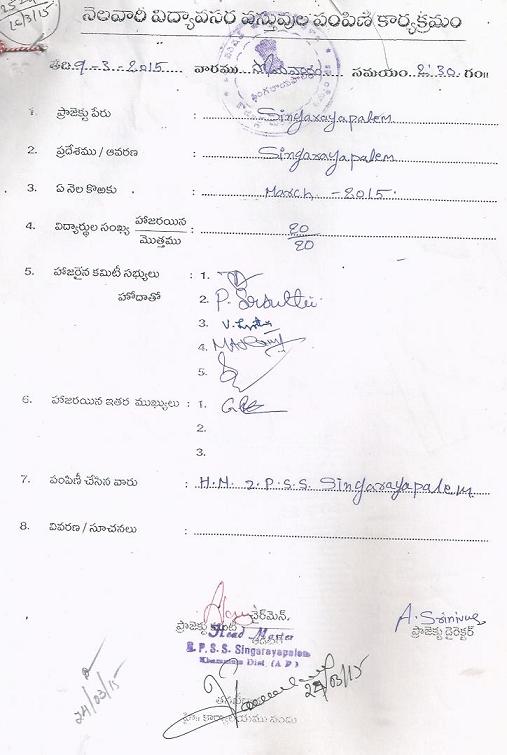 20/3/15
నెలవారీ విద్యావసర వస్తువుల పంపిణీ కార్యక్రమం
తేది 9-3-2015 వారము సోమవారం సమయం 2.30 గం॥
1. ప్రాజెక్టు పేరు : Singarayapalem
2. ప్రదేశము / ఆవరణ : Singarayapalem
3. ఏ నెల కొఱకు : March - 2015
4. విద్యార్థుల సంఖ్య హాజరయిన / మొత్తము : 20/20
5. హాజరైన కమిటీ సభ్యులు : 1.
హోదాతో 2. P.
3. V.
4.
5.
6. హాజరయిన ఇతర ముఖ్యులు : 1.
2.
3.
7. పంపిణీ చేసిన వారు : H.M. 2.P.S.S. Singarayapalem
8. వివరణ / సూచనలు :
ఛైర్‌మెన్,
ప్రాజెక్టు A. Srinivas
Head Master ప్రాజెక్టు డైరెక్టర్
P. S. S. Singarayapalem
Khammam Dist. (A P)
24/03/15
24/03/15